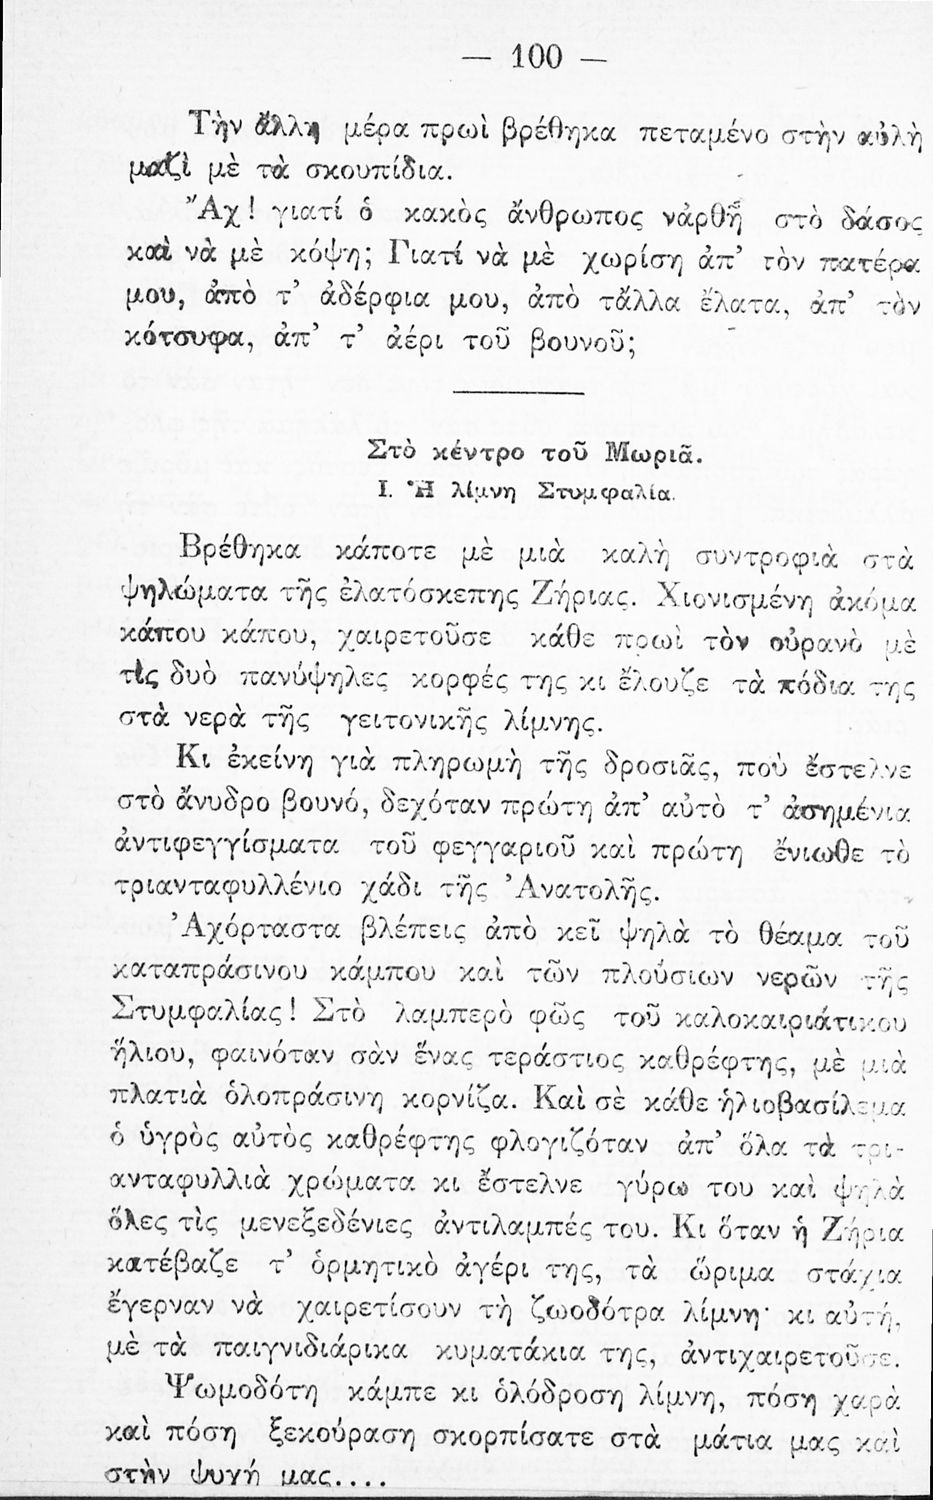 — 100 —
Τὴν ἄλλη μέρα πρωὶ βρέθηκα πεταμένο στὴν αὐλὴ
μαζὶ μὲ τὰ σκουπίδια.
Ἄχ! γιατί ὁ κακὸς ἄνθρωπος νἀρθῇ στὸ δάσος
καὶ νὰ μὲ κόψη; Γιατί νὰ μὲ χωρίση ἀπ’ τὸν πατέρα
μου, ἀπὸ τ’ ἀδέρφια μου, ἀπὸ τἄλλα ἔλατα, ἀπ’ τὸν
κότσυφα, ἀπ’ τ’ ἀέρι τοῦ βουνοῦ;
Στὸ κέντρο τοῦ Μωριᾶ.
I. Ἡ λίμνη Στυμφαλία.
Βρέθηκα κάποτε μὲ μιὰ καλὴ συντροφιὰ στὰ
ψηλώματα τῆς ἐλατόσκεπης Ζήριας. Χιονισμένη ἀκόμα
κάπου κάπου, χαιρετοῦσε κάθε πρωὶ τὸν οὐρανὸ μὲ
τὶς δυὸ πανύψηλες κορφές της κι ἔλουζε τὰ πόδια της
στὰ νερὰ τῆς γειτονικῆς λίμνης.
Κι ἐκείνη γιὰ πληρωμὴ τῆς δροσιᾶς, ποὺ ἔστελνε
στὸ ἄνυδρο βουνό, δεχόταν πρώτη ἀπ’ αὐτὸ τ’ ἀσημένια
ἀντιφεγγίσματα τοῦ φεγγαριοῦ καὶ πρώτη ἔνιωθε τὸ
τριανταφυλλένιο χάδι τῆς Ἀνατολῆς.
Ἀχόρταστα βλέπεις ἀπὸ κεῖ ψηλὰ τὸ θέαμα τοῦ
καταπράσινου κάμπου καὶ τῶν πλούσιων νερῶν τῆς
Στυμφαλίας! Στὸ λαμπερὸ φῶς τοῦ καλοκαιριάτικου
ἥλιου, φαινόταν σὰν ἕνας τεράστιος καθρέφτης, μὲ μιὰ
πλατιὰ ὁλοπράσινη κορνίζα. Καὶ σὲ κάθε ἡλιοβασίλεμα
ὁ ὑγρὸς αὐτὸς καθρέφτης φλογιζόταν ἀπ’ ὅλα τὰ τρι-
ανταφυλλιὰ χρώματα κι ἔστελνε γύρω του καὶ ψηλὰ
ὅλες τὶς μενεξεδένιες ἀντιλαμπές του. Κι ὅταν ἡ Ζήρια
κατέβαζε τ’ ὁρμητικὸ ἀγέρι της, τὰ ὥριμα στάχια
ἔγερναν νὰ χαιρετίσουν τὴ ζωοδότρα λίμνη· κι αὐτή,
μὲ τὰ παιγνιδιάρικα κυματάκια της, ἀντιχαιρετοῦσε.
Ψωμοδότη κάμπε κι ὁλόδροση λίμνη, πόση χαρὰ
καὶ πόση ξεκούραση σκορπίσατε στὰ μάτια μας καὶ
στὴν ψυχή μας....